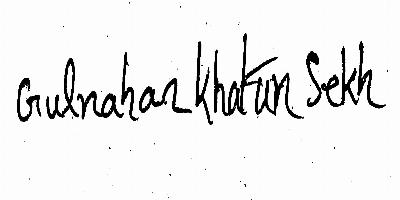 Gulnahar Khatun Sekh